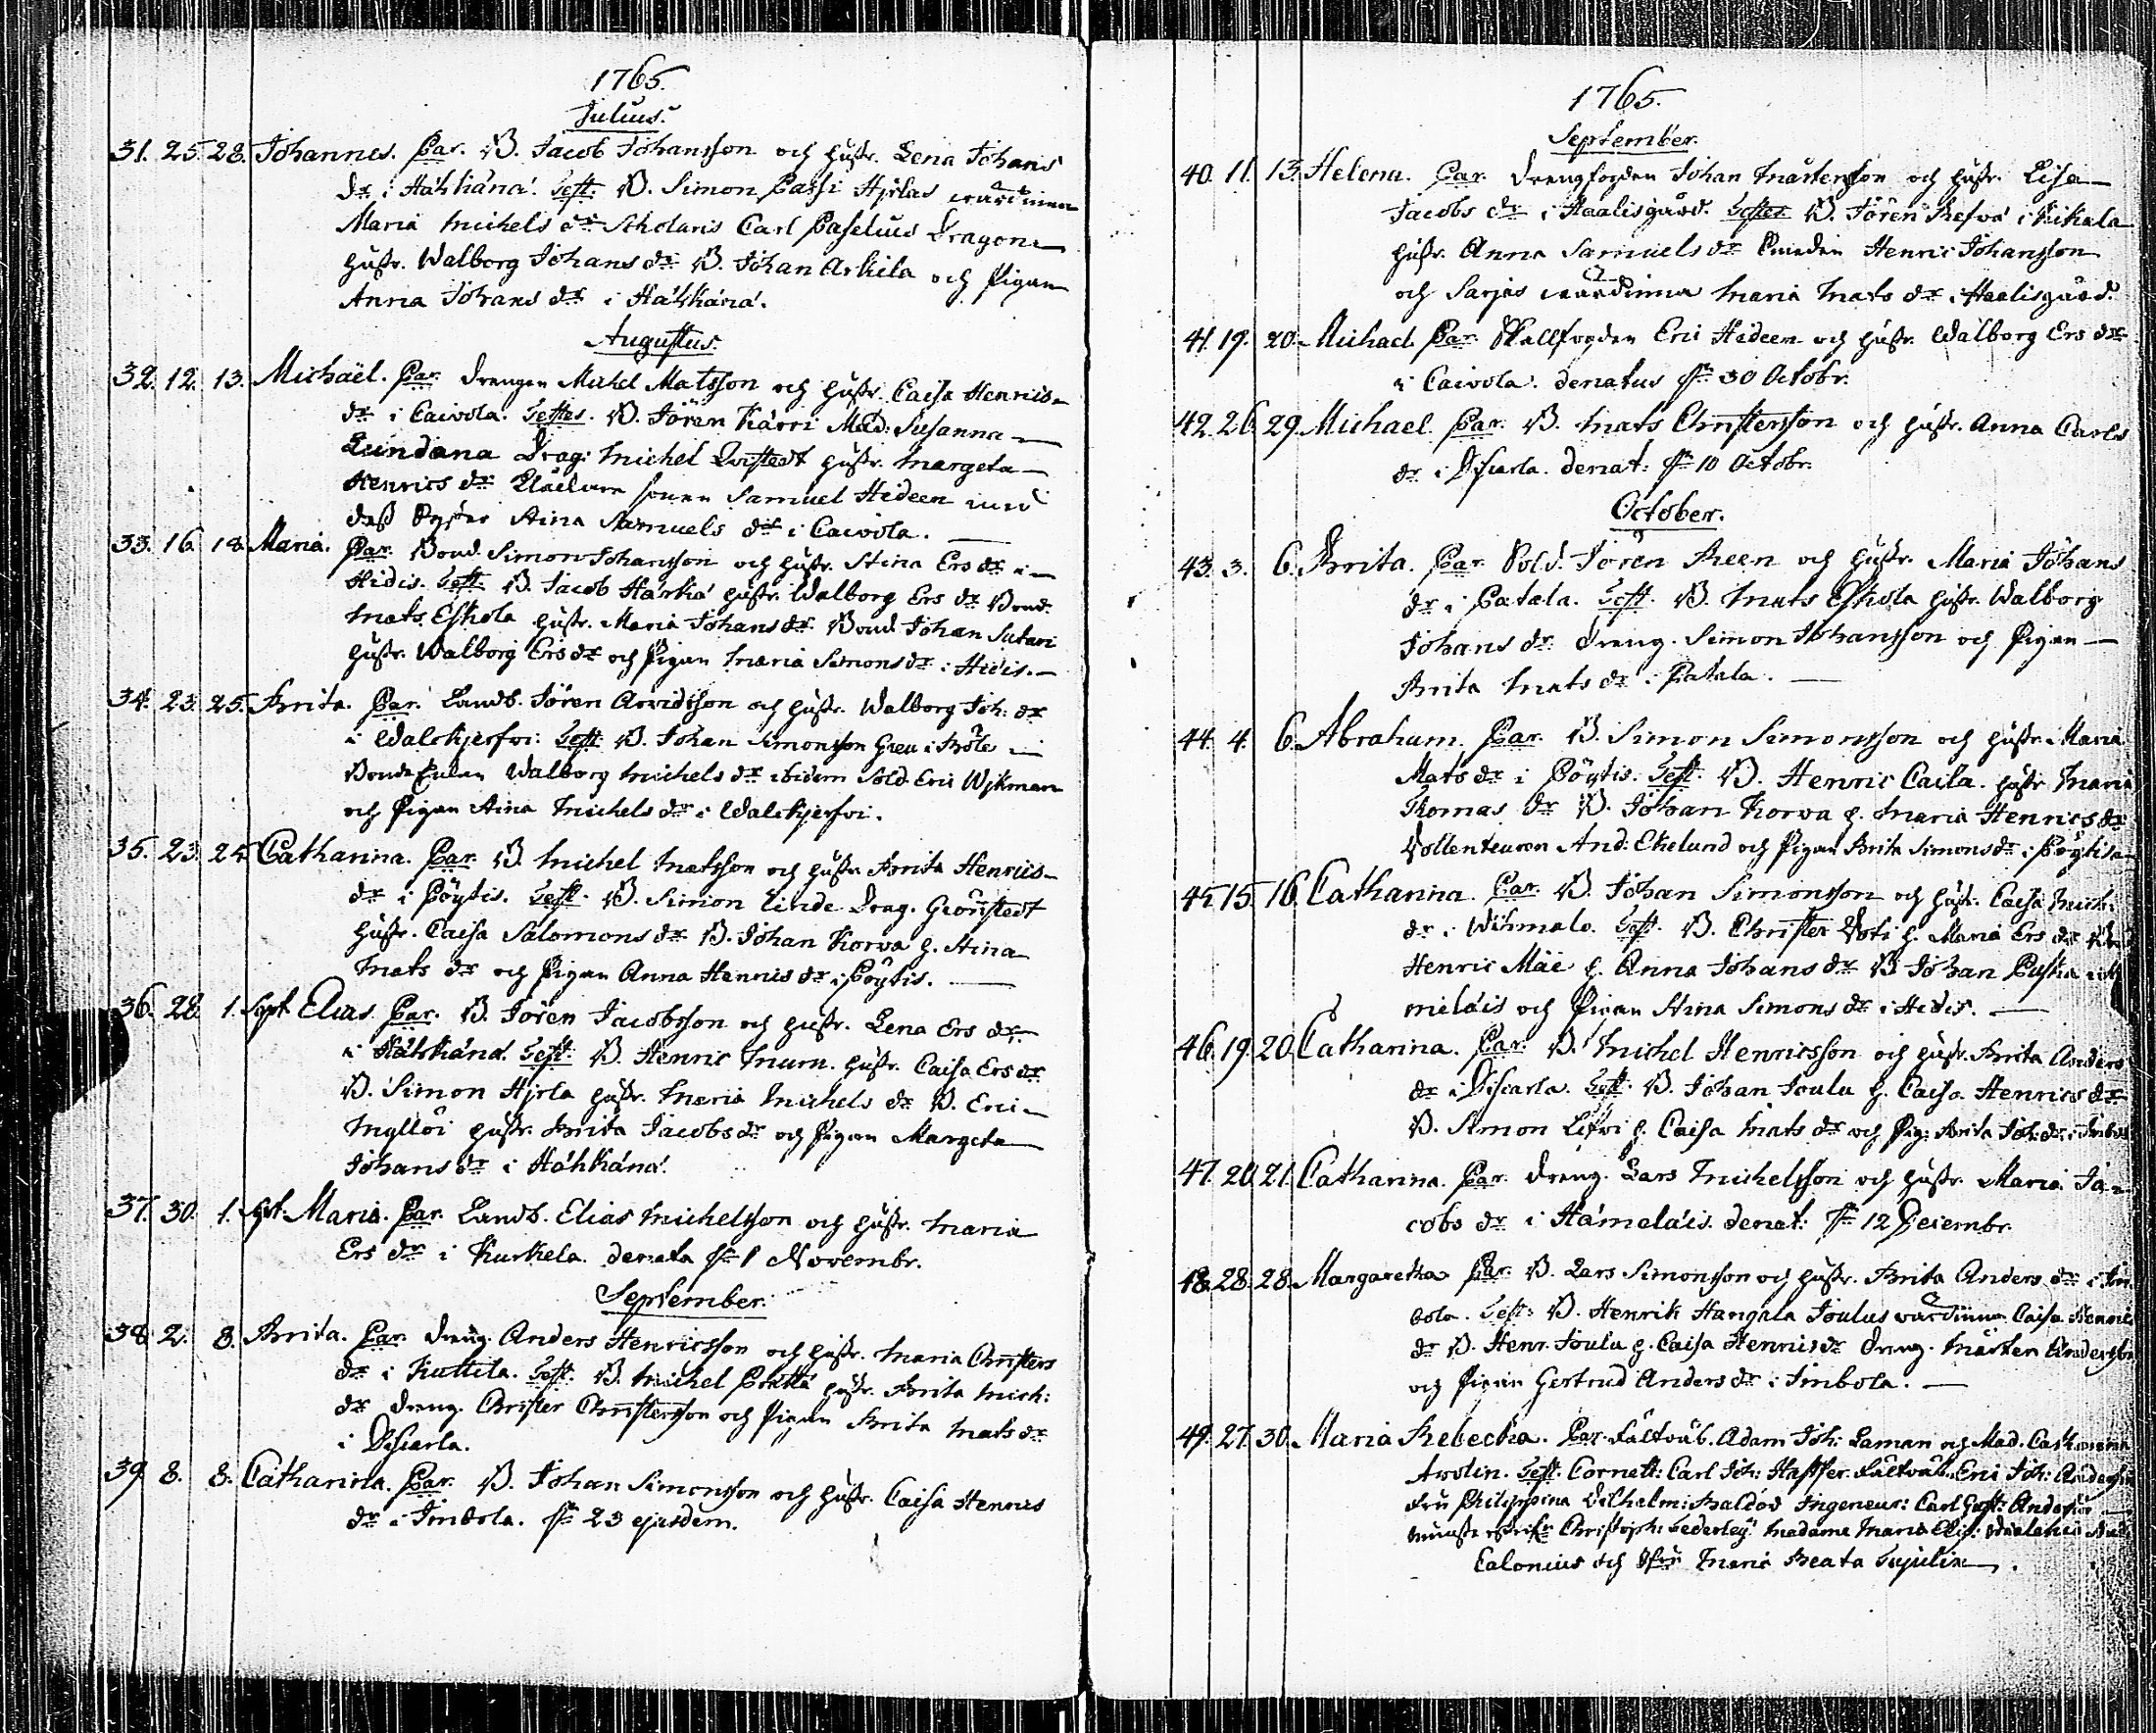 1765.
Julius.
31. 25. 28. Johannes. Par. B. Jacob Johansson och hustr. Lena Johans
dr i Hähkänä. Test. B. Simon Passi Hyrlas wärdinna
Maria Michels dr Scholaris Carl Paselius Dragon
hustr. Walborg Johans dr B. Johan Arkila och Pigan
Anna Johans dr i Hähkänä.
Augustus.
32. 12. 13. Michaël. Par. Drengen Michel Matsson och hustr. Caisa Henrics
dr i Caivola. Testes. B. Jören Kärri Mad: Susanna
Lundana Drag: Michel Qvistedt hustr. Margeta
Henrics dr sonen Samuel Hideen med
dess Syster Stina Samuels dr i Caivola.
33. 16. 18. Maria. Par. Bond. Simon Johansson och hustr. Stina Ers dr i
Hidis. Test. B. Jacob Harka hustr. Walborg Ers dr Bond.
Mats Eskola hustr. Maria Johans dr. Bond. Johan Sutari
hustr. Walborg Ers dr och Pigan Maria Simons dr i Hidis.
34. 23. 25. Brita. Par. Landb. Jören Arvidsson och hustr. Walborg Joh: dr
i Walckjerfvi: Test. B. Johan Simonsson Greu i
Bonde Enkan Walborg Michels dr ibidem Sold. Eric Wykman
och Pigan Stina Michels dr i Walckjerfvi.
35. 23. 24. Catharina. Par. B. Michel Matsson och hustr. Brita Henrics
dr i Pöytis. Test. B. Simon Linde Drag. Grönstedt
hustr. Caisa Salomons dr B. Johan Korva h. Stina
Mats dr och Pigan Anna Henrics dr i Pöytis.
36. 28. 1. Sept. Elias. Par. B. Jören Jacobsson och hustr. Lena Ers dr
i Hähkänä. Test. B. Henric Mum. hustr. Caisa Ers dr
B. Simon Hyrla hustr. Maria Michels dr B. Eric
Mylloi hustr. Brita Jacobs dr och Pigan Margeta
Johans dr i Hähkänä.
37. 30. 1. Spt. Maria. Par. Landb. Elias Michelsson och hustr. Maria
Ers dr i Kurkela. denata d. 1 Novembr.
September.
38. 2. 8. Brita. Par. Dreng. Anders Henricsson och hustr. Maria Christers
dr i Kuttila. Test. B. Michel Prättä hustr. Brita Mich:
dr Dreng. Christer Christersson och Pigan Brita Mats dr
i Discarla.
39. 8. 8. Catharina. Par. B. Johan Simonsson och hustr. Caisa Henrics
dr i Imbola. d. 23 ejusdem.
1765.
September.
40. 11. 13. Helena. Par. Drengfogden Johan Mårtensson och hustr. Lisa
Jacobs dr i Haalisgård. Testes B. Jören Refva i Rikala
hustr. Anna Samuels dr Henric Johansson
och Sarjas wärdinna Maria Mats dr i Haalisgård.
41. 19. 20. Michael. Par. Skallfogden Eric Hideen och hustr. Walborg Ers dr
i Caivola. denatus d. 30 Octobr.
42. 26. 29. Michael. Par. B. Mats Christersson och hustr. Anna Carls
dr i Discarla. denat: d. 10 Octobr.
October.
43. 3. 6. Brita. Par. Sold. Jören Reen och hustr. Maria Johans
dr i Patala. Test. B. Mats Eskola hustr. Walborg
Johans dr. Dreng. Simon Johansson och Pigan
Brita Mats dr i Patala.
44. 4. 6. Abraham. Par. B. Simon Simonsson och hustr. Maria
Mats dr i Pöytis. Test. B. Henric Caila. hustr Maria
Thomas dr B. Johan Korva h. Maria Henrics dr
Volienteuren And: Ekelund och Pigan Brita Simons dr i Pöytis
45. 15. 16. Catharina. Par. B. Johan Simonsson och hustr. Caisa Mich:
dr i Wihmalo. Test. B. Christer Voti h. Maria Ers dr
Henric Mäe h. Anna Johans dr B Johan Puska i
meläis och Pigan Stina Simons dr i Hidis.
46. 19. 20. Catharina. Par. B. Michel Henricsson och hustr. Brita Anders
dr i Discarla. Test. B. Johan Joulu h. Caisa Henrics dr
B. Simon Lifvi h. Caisa Mats dr och Pig: Brita Joh: dr i
47. 20. 21. Catharina. Par. Dreng. Lars Michelsson och hustr. Maria Ja-
cobs dr i Hämeläis. denat: d. 12 Decembr.
48. 28. 28. Margaretha Par. B. Lars Simonsson och hustr. Brita Anders dr i Im
bola. Test: B. Henrik Hangala Joulus wärdinna Caisa Henric
dr B. Henr. Joulu h. Caisa Henrics dr Dreng. Mårten Andersson
och Pigan Gertrud Anders dr i Imbola.
49. 27. 30. Maria Rebecka. Par. Fältväb. Adam Joh: Laman och Mad. Catharina
Arolin. Test. Cornett: Carl Joh: Fältväb. Eric Joh:
Fru Philippina Wilhelm: Ingeneur: Carl Gust:
Christoph: Cederley Madame Maria Elis:
Calonius och Maria Beata